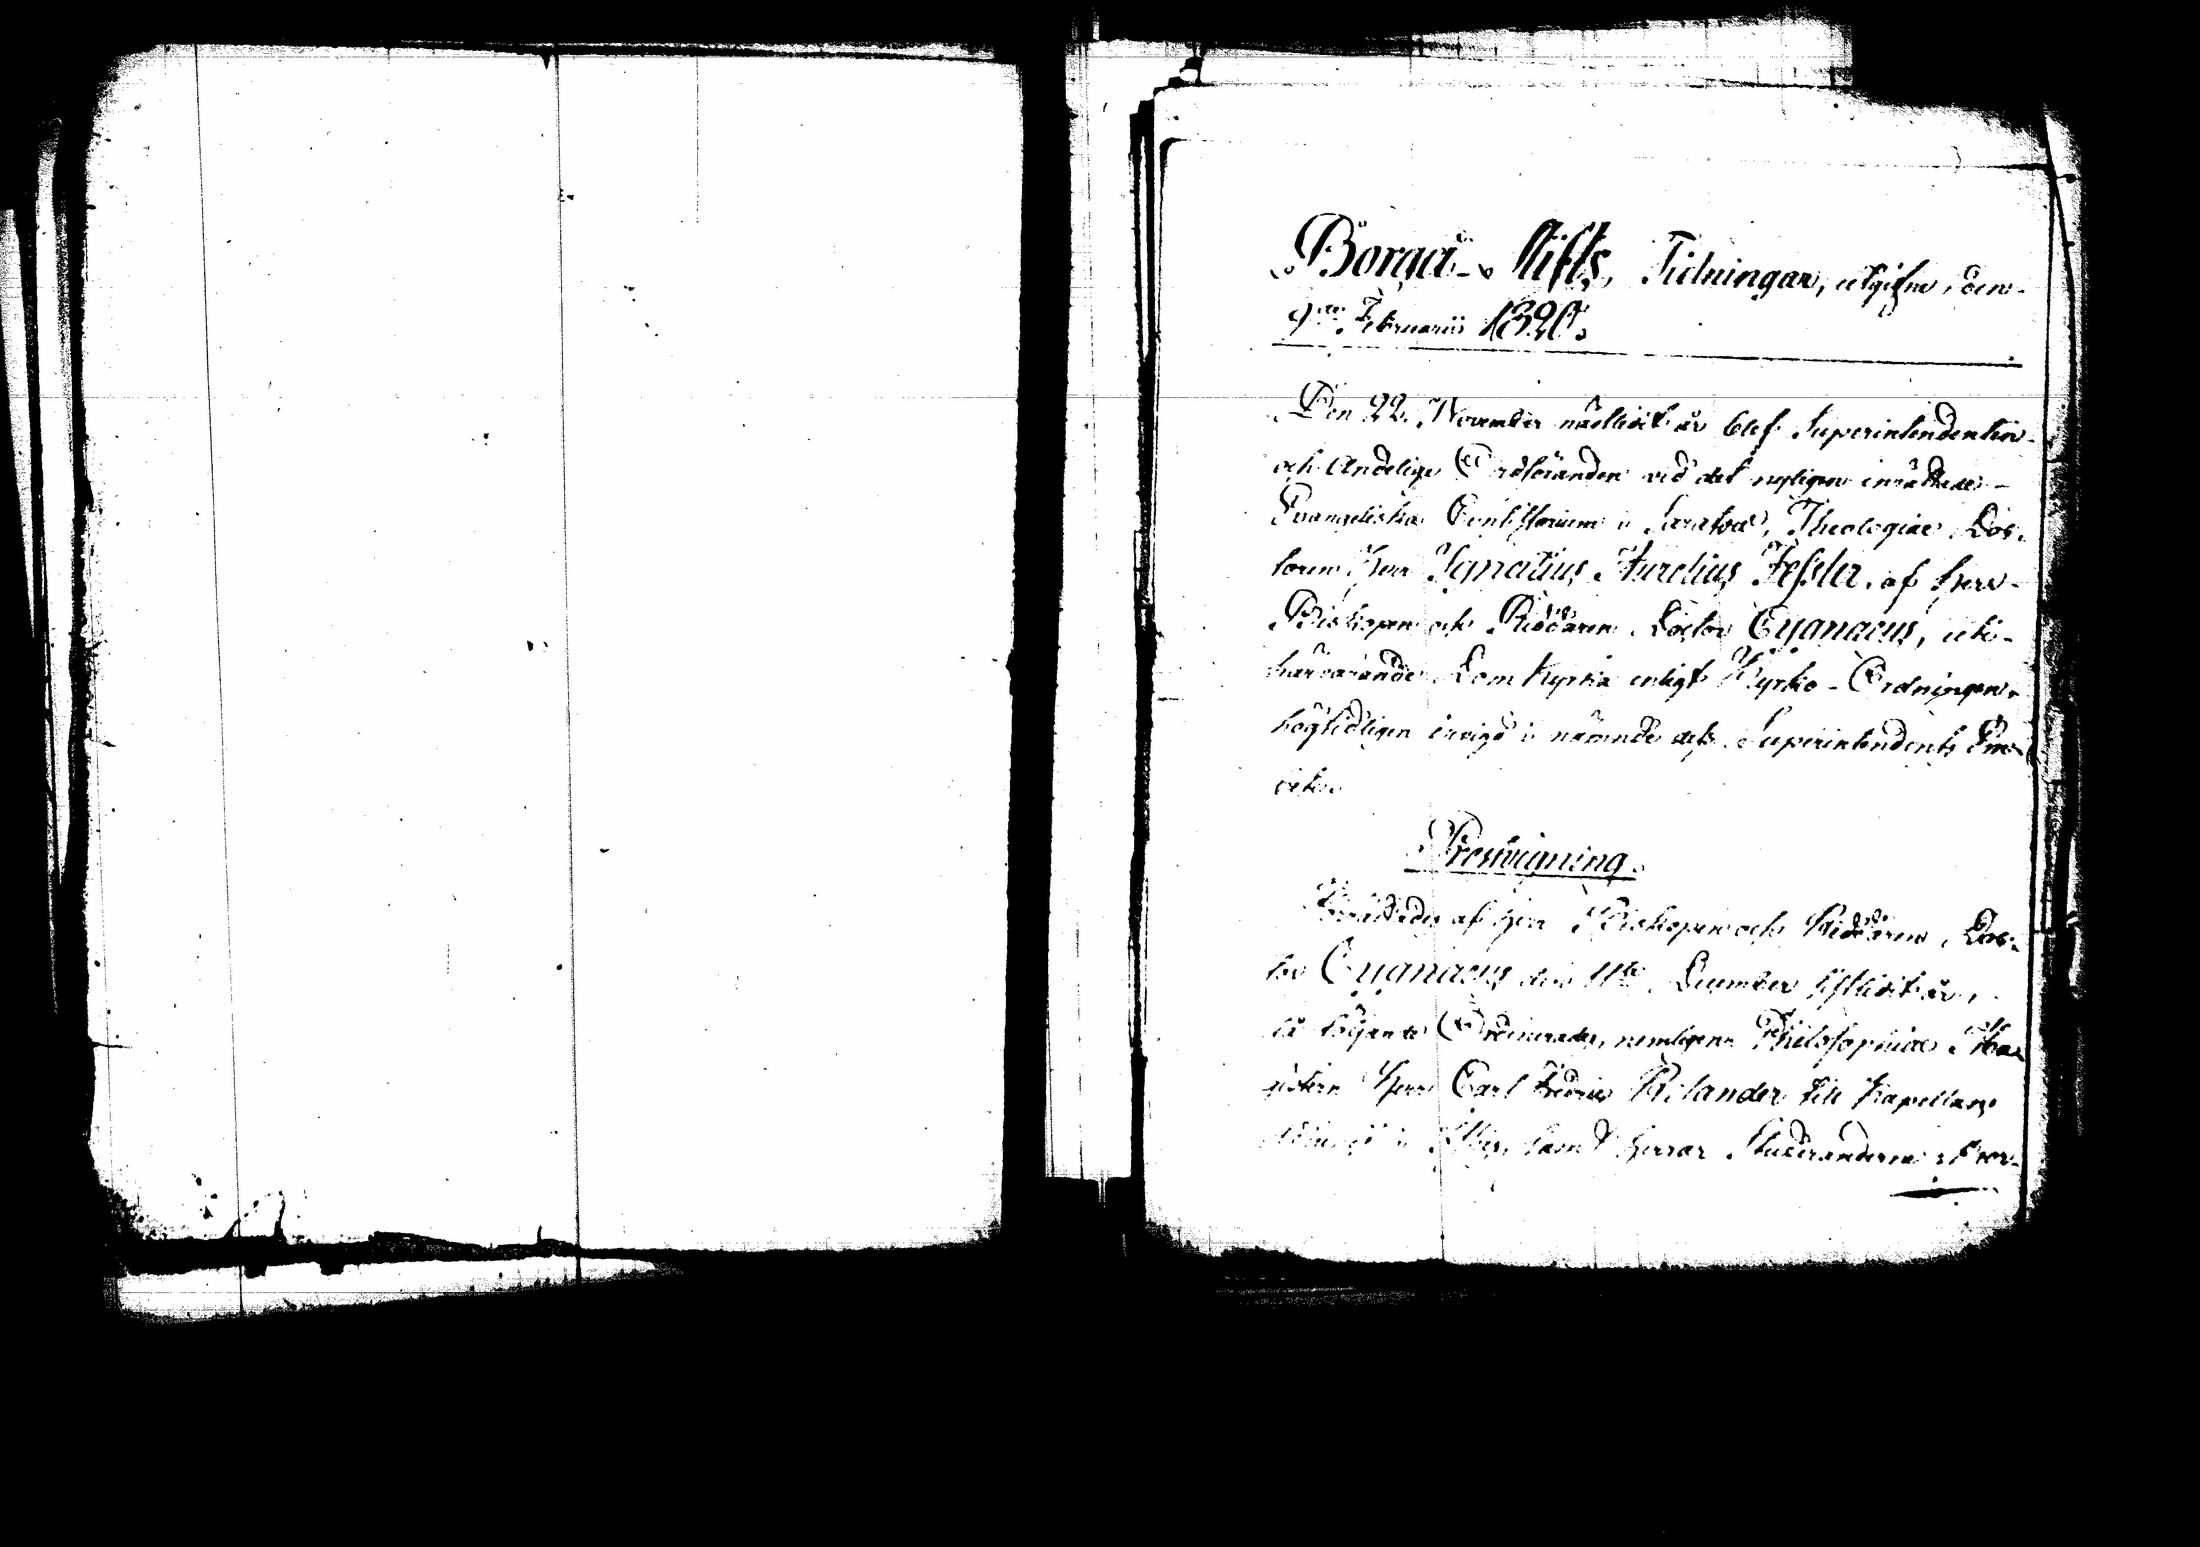 Borgå Stifts Tidningar, utgifne den
9de Februarii 1820.
Den 22. November nästledit år blef Superintendenten
och Andelige Ordföranden vid det nyligen inrättade
Evangeliska Consistorium i Saratow, Theologiae Doc-
torn Herr Ignatius Aurelius Fessler, af Herr
Biskopen och Riddaren Doctor Cygnaeus, uti
härvarande Domkyrka enligt Kyrko-Ordningen,
högtidligen invigd i nämnde dess Superintendents Em-
bete.
Prestvigning.
Förrättades af Herr Biskopen och Riddaren, Doc-
tor Cygnaeus den 11te December sistledit år,
då följande Ordinerades, nemligen Philosophiae Ma-
gistern Herr Carl Fredric Relander till Kapellans
i samt Herrar Studeranderne